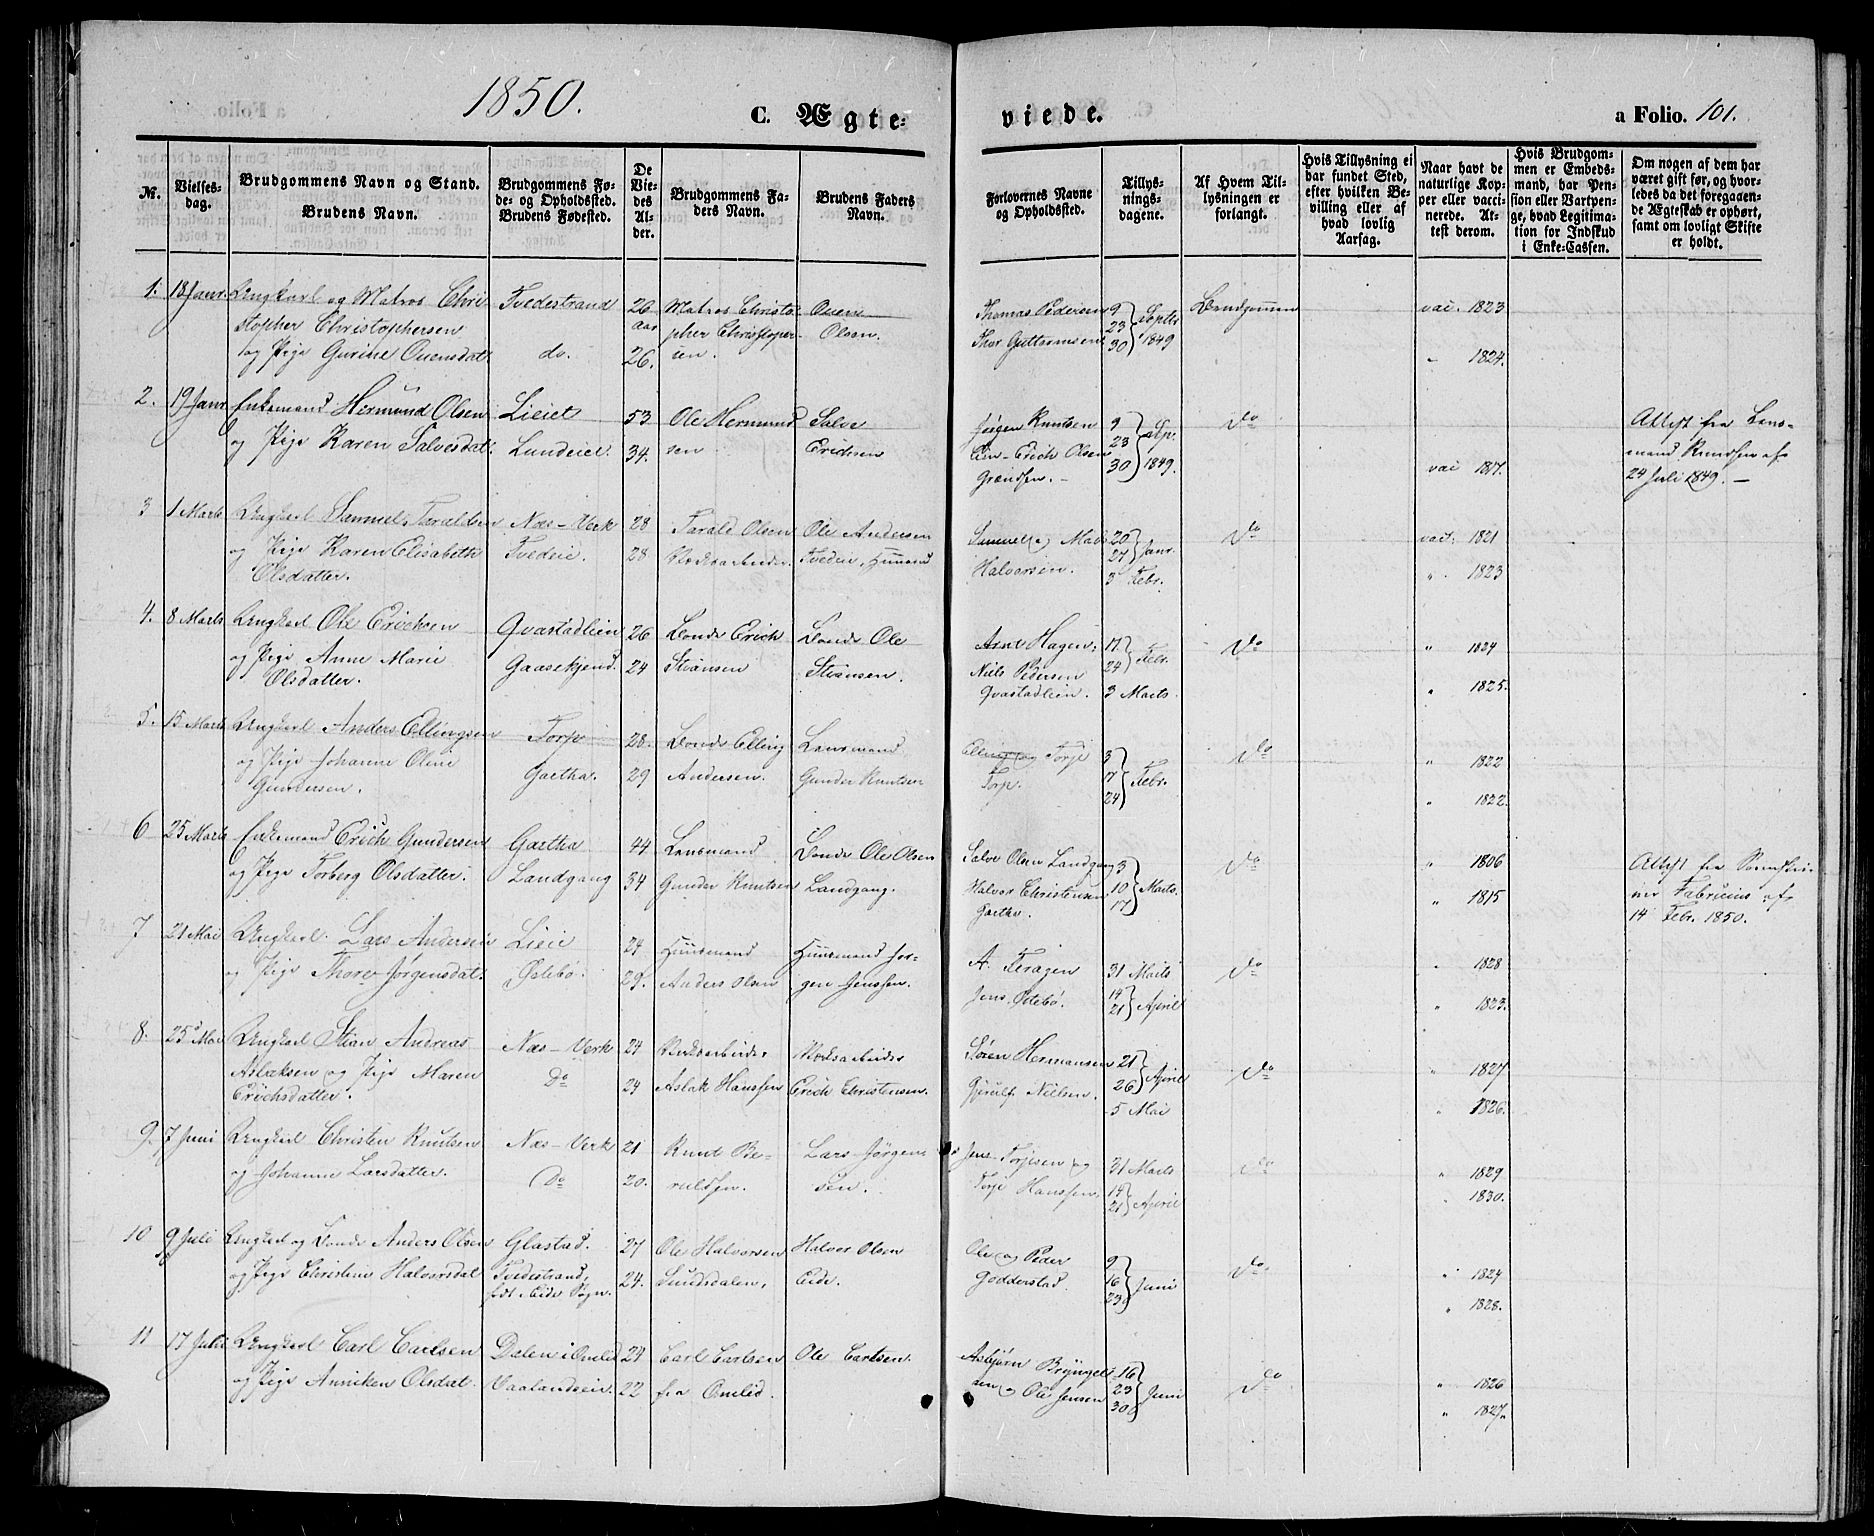 1850.
C. Ægte=
viede.
a Folio. 101.
№.
Vielses=
dag.
Brudgommens Navn og Stand.
Brudens Navn.
Brudgommens Fø=
de= og Opholdssted.
Brudens Fødested.
De
Vie=
des
Al=
der.
Brudgommens Fa=
ders Navn.
Brudens Faders
Navn.
Forlovernes Navne
og Opholdssted.
Tillys=
nings=
dagene.
Af Hvem Til=
lysningen er
forlangt.
Hvis Tillysning ei
har fundet Sted,
efter hvilken Be=
villing eller af
hvad lovlig
Aarsag.
Naar havt de
naturlige Kop=
per eller vacci=
nerede. At=
test derom.
Hvis Brudgom=
men er Embeds=
mand, har Pen=
sion eller Vartpen=
ge, hvad Legitima=
tion for Indskud
i Enke=Cassen.
Om nogen af dem har
været gift før, og hvor=
ledes da det foregaaen=
de Ægteskab er ophørt,
samt om lovligt Skifte
er holdt.
1. 18 Janr. Ungkarl og Matros Chri Tvedestrand 26 Matros Christo Ouen Thomas Pedersen 9 Septbr Brudgommen vac 1823
stopher Christophersen aar pher Christopher- Olsen. Thor Guttormsen 23 1849
og Pige Gurine Ouensdat. do. 26. sen. 30 " 1824.
2. 19 Janr. Enkemand Hermund Olsen Lieiet 53 Ole Hermund Salve Jørgen Knutsen 9 Sep. Do Attest fra Lens=
og Pige Karen Salvesdat. Lundeiet. 34. sen Erichsen Erich Olsen 23 1849. vac 1817. mand Knudsen af
Grændsen. 30 24 Juli 1849.
3 1 Marts Ungkarl Samuel Taraldsen Næs-Verk 28 Tarald Olsen Ole Andersen Samuel og Mads 20 Janr. Do vac. 1821
og Pige Karen Elisabeth Tvedeie. 28 Værksarbeider. Tvedeie, Huusmd Halvorsen. 27 " 1823
Olsdatter. 3 Febr.
4. 8 Marts Ungkarl Ole Erichsen Qvastadleien 26 Bonde Erich Bonde Ole Arnt Hagen, 17 Febr. Do " 1824
og Pige Anne Marie Gaasekjend. 24 Stiansen Stiansen. Niels Pedersen 24
Olsdatter. Qvastadleien. 3 Marts. " 1825.
5. 15 Marts Ungkarl Anders Ellingsen Torp 28. Bonde Elling Lensmand Elling og Torje 3 Febr. Do " 1822
og Pige Johanne Oline Gaetha. 29 Andersen. Gunder Knutsen Torp. 17
Gundersen. 24 " 1822.
6 25 Marts Enkemand Erich Gundersen Gartha 44. Lensmand Bonde Ole Olsen Salve Olsen Landgang 3 Marts. Do " 1806 Attest fra
og Pige Torberg Olsdatter. Landgang 34 Gunder Knutsen Landgang. Halvor Christensen 10 " 1815 Fabricius af
Gartha. 17 14 Febr. 1850.
7 21 Mai Ungkarl. Lars Andersen Lieie 24 Huusmand Huusmand Jør- A. Feragen 31 Marts Do " 1828
og Pige Thore Jørgensdat. Østebø. 29. Anders Olsen gen Jenssen. Jens Østebø. 14 21 April " 1823.
8. 25 Mai Ungkarl Stian Andreas Næs-Verk 24 Værksarbeider Værksarbeider Søren Hermansen 21 April Do " 1827
Aslaksen og Pige Maren Do 24 Aslak Hanssen Erich Christensen. Gjerulf Nielsen. 26
Erichsdatter. 5 Mai " 1826.
9. 7 Juni Ungkarl Christen Knutsen Næs-Verk 21 Knut Be- Lars Jørgen Jens Torjesen og 31 Marts Do " 1829
og Johanne Larsdatter. Do 20. ruldsen. sen. Torje Hanssen. 14 21 April " 1830.
10 9 Juli Ungkarl og Bonde Anders Olsen Glastad. 27 Ole Halvorsen Halvor Olsen Ole og Peder 9 Juni Do " 1824
og Pige Christine Halvorsdat Tvedestrand, 24. Sundsdalen, Eide. Godderstad. 16
født i Eide Sogn. 23 " 1828.
11 17 Juli Ungkarl Carl Carlsen Dalen i Omlid 24 Carl Carlsen Ole Carlsen. Asbjørn Bryngels 16 Juni Do " 1826
og Pige Anniken Olsdat. Vaalandseie. 22 fra Omlid. sen og Ole Jensen 23 30 " 1827.